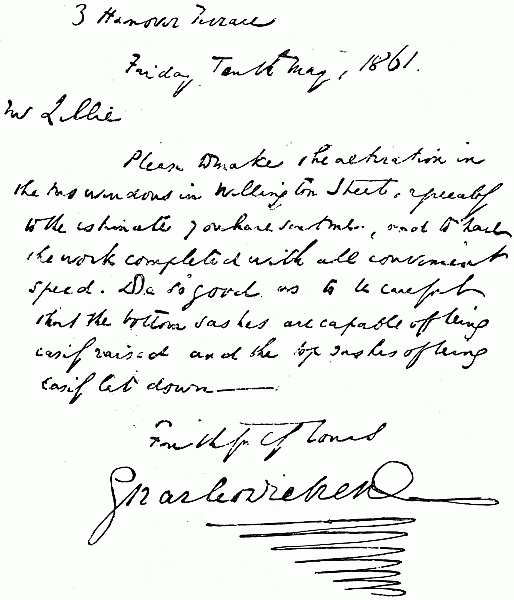 3 Hanover Terrace
Friday Tenth May, 1861.
Mr Lillie
Please to make the alteration in
the two windows in Wellington Street, agreeably
to the estimate you have sent me, and to have
the work completed with all convenient
speed. Be so good as to be careful
that the bottom sashes are capable of being
easily raised and the top sashes of being
easily let down
Faithfully Yours
Charles Dickens